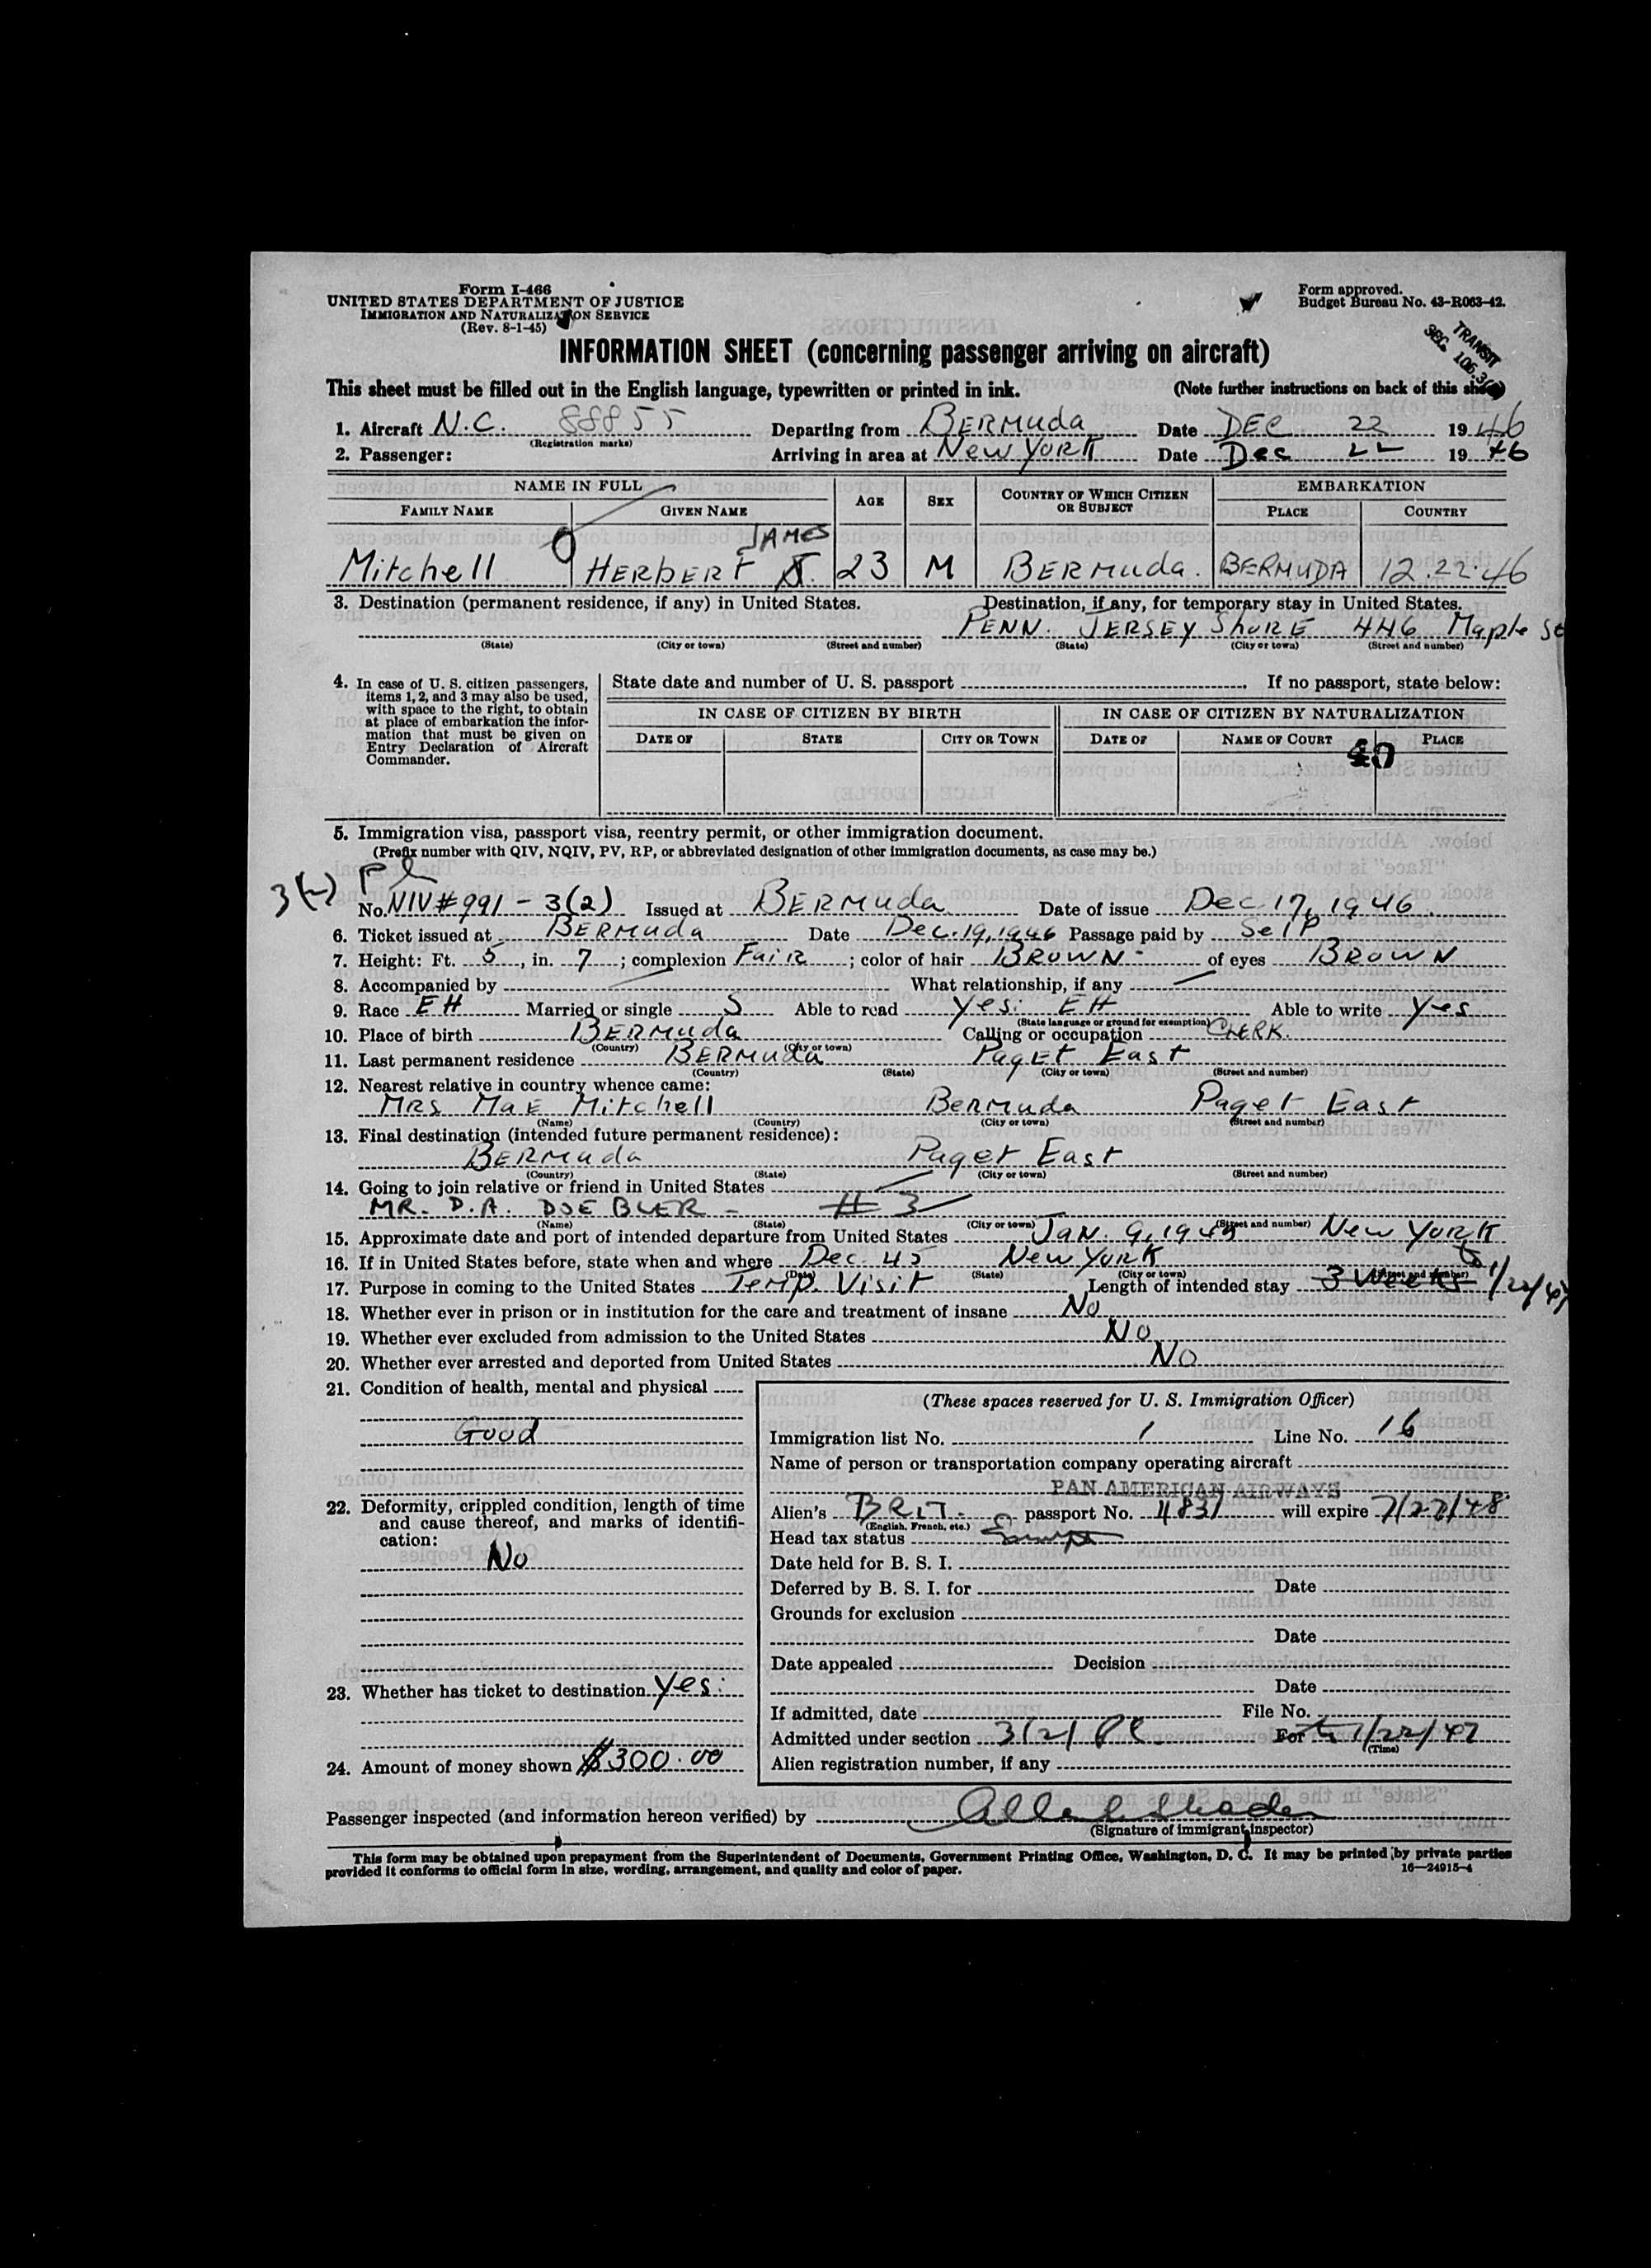 Form I-466
UNITED STATES DEPARTMENT OF JUSTICE
IMMIGRATION AND NATURALIZATION SERVICE
(Rev. 8-1-45)
Form approved.
Budget Bureau No. 43-R063-42.
TRANSIT
SEC. 106.3
INFORMATION SHEET (concerning passenger arriving on aircraft)
This sheet must be filled out in the English language, typewritten or printed in ink. (Note further instructions on back of this sheet)
1. Aircraft N.C. 88855 Departing from BERMUda Date DEC 22 1946
(Registration marks)
2. Passenger: Arriving in area at New YORK Date Dec 22 1946
NAME IN FULL AGE SEX COUNTRY OF WHICH CITIZEN OR SUBJECT EMBARKATION
FAMILY NAME GIVEN NAME PLACE COUNTRY
JAMES
Mitchell HERbERT J. 23 M BERMuda. BERMUDA 12.22.46
3. Destination (permanent residence, if any) in United States. Destination, if any, for temporary stay in United States.
PENN. JERSEY ShORE 446 Maple St
(State) (City or town) (Street and number) (State) (City or town) (Street and number)
4. In case of U. S. citizen passengers, items 1, 2, and 3 may also be used, with space to the right, to obtain at place of embarkation the information that must be given on Entry Declaration of Aircraft Commander.
State date and number of U. S. passport If no passport, state below:
IN CASE OF CITIZEN BY BIRTH IN CASE OF CITIZEN BY NATURALIZATION
DATE OF STATE CITY OR TOWN DATE OF NAME OF COURT PLACE
40
5. Immigration visa, passport visa, reentry permit, or other immigration document.
(Prefix number with QIV, NQIV, PV, RP, or abbreviated designation of other immigration documents, as case may be.)
3(2)
No. NIV#991-3(2) Issued at BERMuda Date of issue Dec 17, 1946.
6. Ticket issued at BERMuda Date Dec.19,1946 Passage paid by Self
7. Height: Ft. 5, in. 7; complexion FaiR; color of hair BROWN- of eyes BROWN
8. Accompanied by What relationship, if any
9. Race EH Married or single S Able to read yes: EH Able to write yes
(State language or ground for exemption)
10. Place of birth BERMuda Calling or occupation CLERK.
(Country) (City or town)
11. Last permanent residence BERMuda PagET East
(Country) (State) (City or town) (Street and number)
12. Nearest relative in country whence came:
MRS MaE Mitchell BerMuda Paget East
(Name) (Country) (City or town) (Street and number)
13. Final destination (intended future permanent residence):
BERMuda Paget East
(Country) (State) (City or town) (Street and number)
14. Going to join relative or friend in United States
MR. D.A. DOEBLER - # 3
(Name) (State) (City or town) (Street and number)
15. Approximate date and port of intended departure from United States JaN. 9, 19 New YORK
16. If in United States before, state when and where Dec. 45 New YORK
(Date) (State) (City or town) (Street and number)
17. Purpose in coming to the United States Temp. Visit Length of intended stay 3 Weeks to 1/22/47
18. Whether ever in prison or in institution for the care and treatment of insane No
19. Whether ever excluded from admission to the United States No
20. Whether ever arrested and deported from United States No
21. Condition of health, mental and physical
Good
22. Deformity, crippled condition, length of time and cause thereof, and marks of identification:
No
23. Whether has ticket to destination yes:
24. Amount of money shown $300.00
(These spaces reserved for U. S. Immigration Officer)
Immigration list No. 1 Line No. 16
Name of person or transportation company operating aircraft
PAN AMERICAN AIRWAYS
Alien's BRIT. passport No. 11831 will expire 7/27/48.
(English, French, etc.)
Head tax status
Date held for B. S. I.
Deferred by B. S. I. for Date
Grounds for exclusion
Date
Date appealed Decision
Date
If admitted, date File No.
Admitted under section 3(2) For to 1/22/47
(Time)
Alien registration number, if any
Passenger inspected (and information hereon verified) by
(Signature of immigrant inspector)
This form may be obtained upon prepayment from the Superintendent of Documents, Government Printing Office, Washington, D. C. It may be printed by private parties
provided it conforms to official form in size, wording, arrangement, and quality and color of paper. 16—24915-4